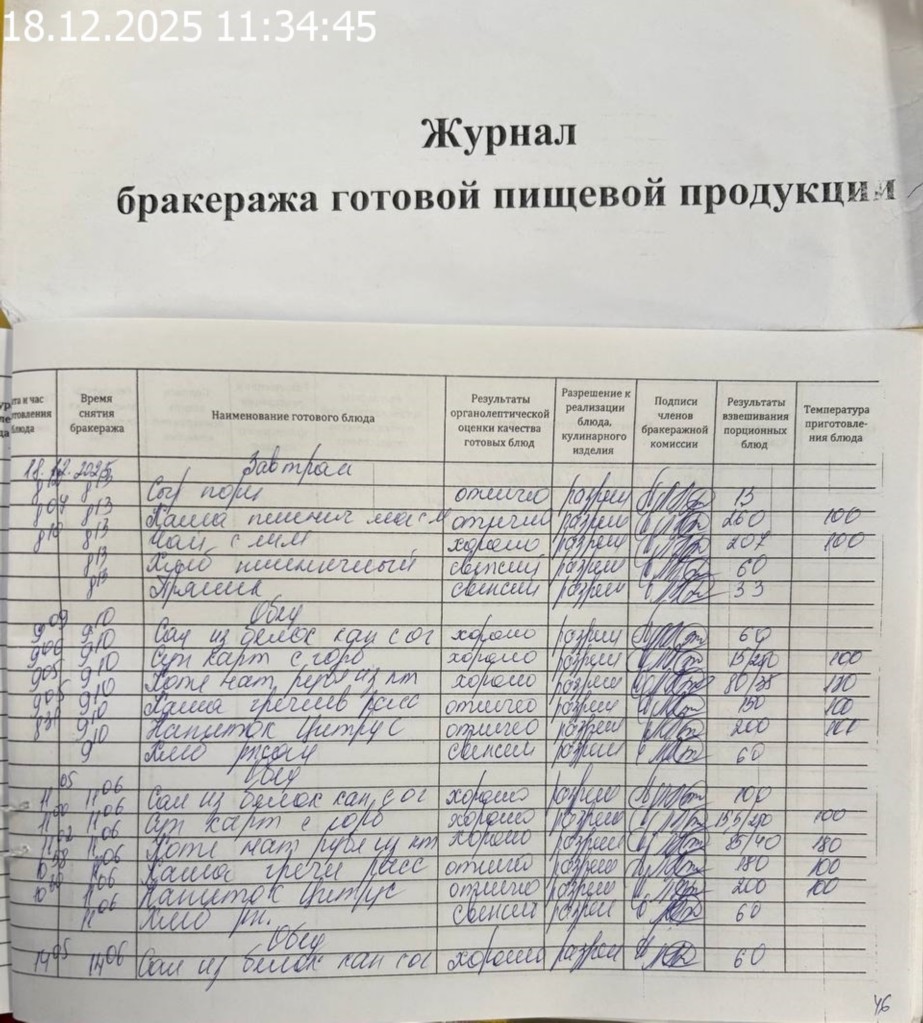 18.12.2025 11:34:45
Журнал
бракеража готовой пищевой продукции
та и час товления блюда Время снятия бракеража Наименование готового блюда Результаты органолептической оценки качества готовых блюд Разрешение к реализации блюда, кулинарного изделия Подписи членов бракеражной комиссии Результаты взвешивания порционных блюд Температура приготовле-ния блюда
18.12.2025 Завтрак
8 13 Сыр порц отлично разреш 15
8 07 8 13 Каша пшенич отлично разреш 260 100
8 10 8 13 Чай с лим хорошо разреш 207 100
8 13 Хлеб пшеничный свежий разреш 60
8 13 Пряник свежий разреш 33
Обед
9 09 9 10 Сал из белок кап с ог хорошо разреш 60
9 06 9 10 Суп карт с горо хорошо разреш 15/250 100
9 05 9 10 Котле нат рубл из пт хорошо разреш 80/35 180
9 05 9 10 Каша гречнев расс отлично разреш 150 100
9 10 Напиток Цитрус отлично разреш 200 100
9 Хлеб свежий разреш 60
Обед
11 05 11 06 Сал из белок кап с ог хорошо разреш 100
11 00 11 06 Суп карт с горо хорошо разреш 100
11 02 11 06 Котле нат рубл из пт хорошо разреш 85/40 180
10 58 11 06 Каша гречн расс отлично разреш 180 100
10 11 06 Напиток Цитрус отлично разреш 200 100
11 06 Хлеб рж. свежий разреш 60
Обед
14 05 14 06 Сал из белок кап с ог хорошо разреш 60
46